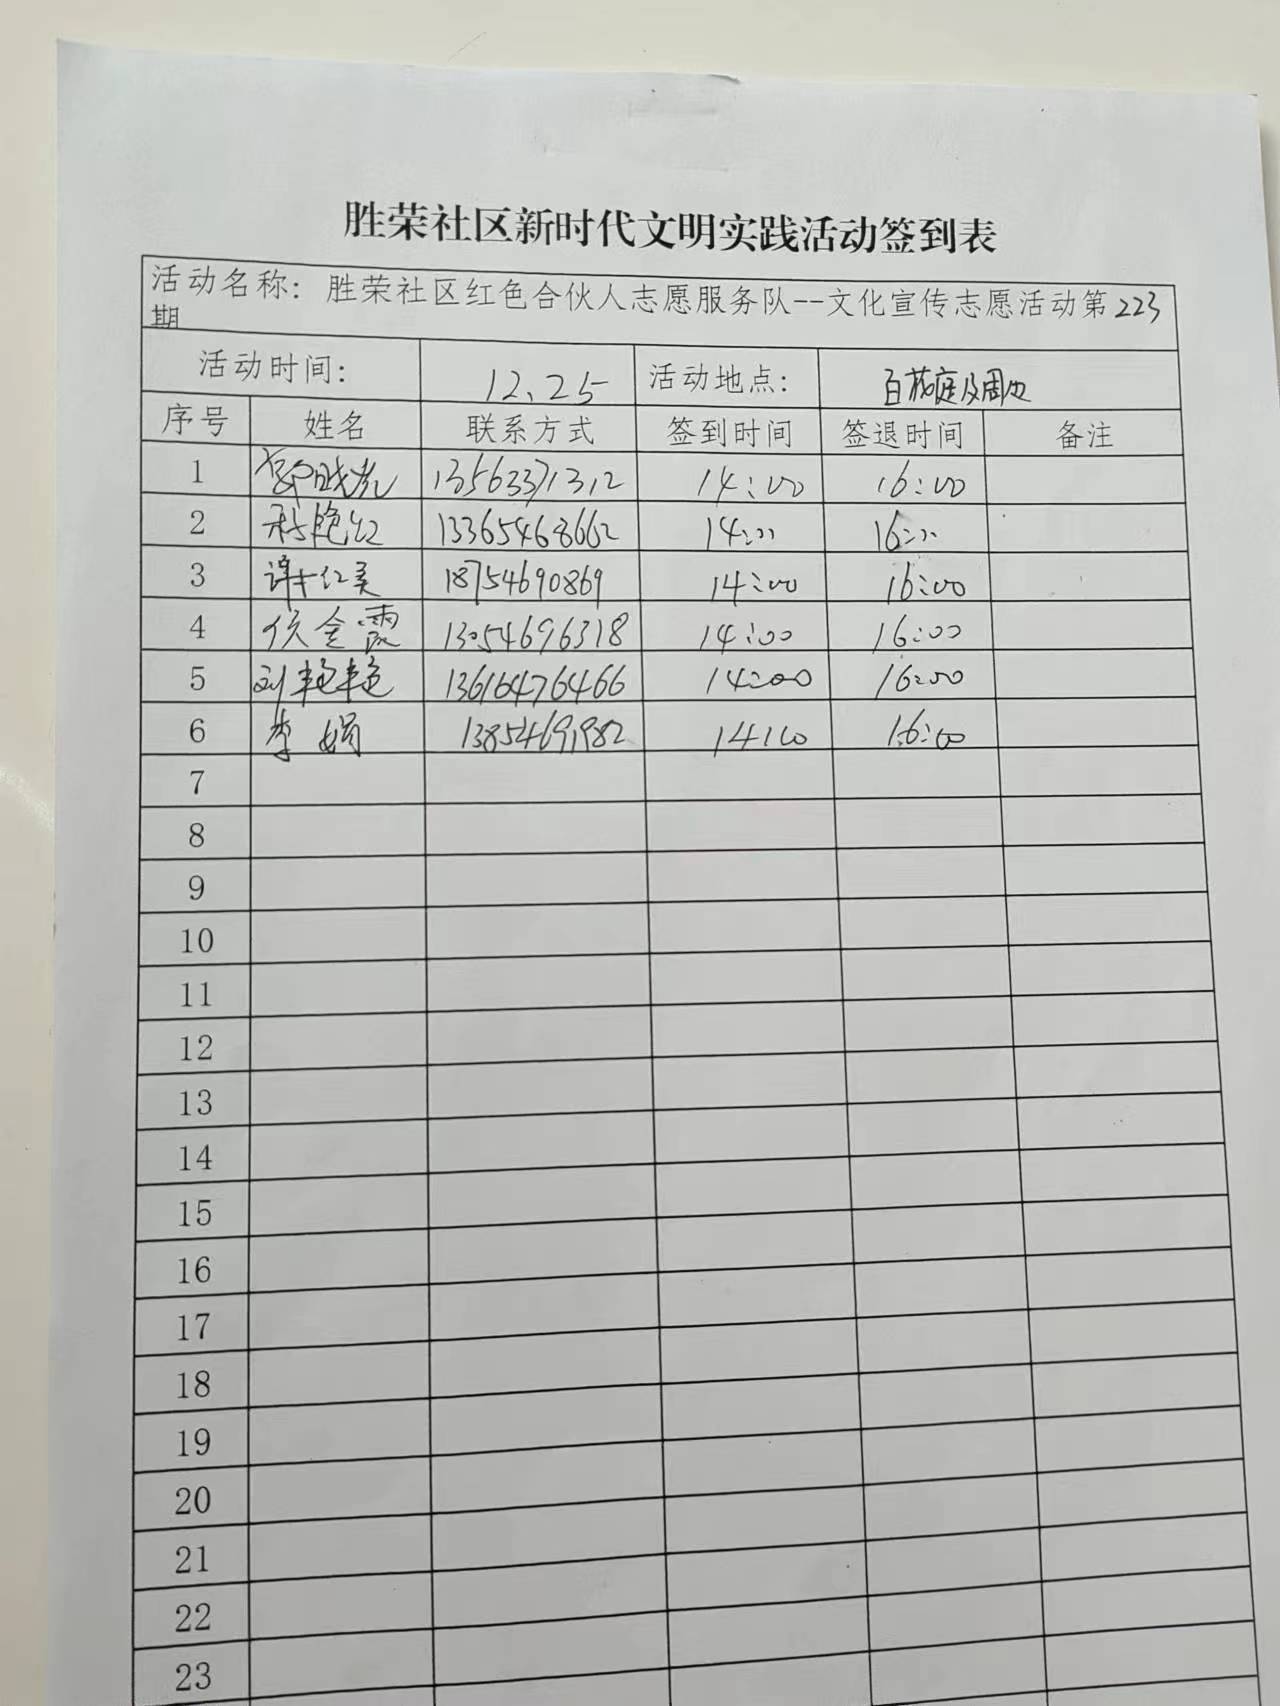 胜荣社区新时代文明实践活动签到表
活动名称：胜荣社区红色合伙人志愿服务队--文化宣传志愿活动第223
期
活动时间： 12.25 活动地点： 百花庭及周边
序号 姓名 联系方式 签到时间 签退时间 备注
1 13563371312 14:00 16:00
2 13365468662 14:00 16:00
3 红美 18754690869 14:00 16:00
4 侯金霞 13054696318 14:00 16:00
5 刘艳艳 13616476466 14:00 16:00
6 李娟 13854691982 14:00 16:00
7
8
9
10
11
12
13
14
15
16
17
18
19
20
21
22
23